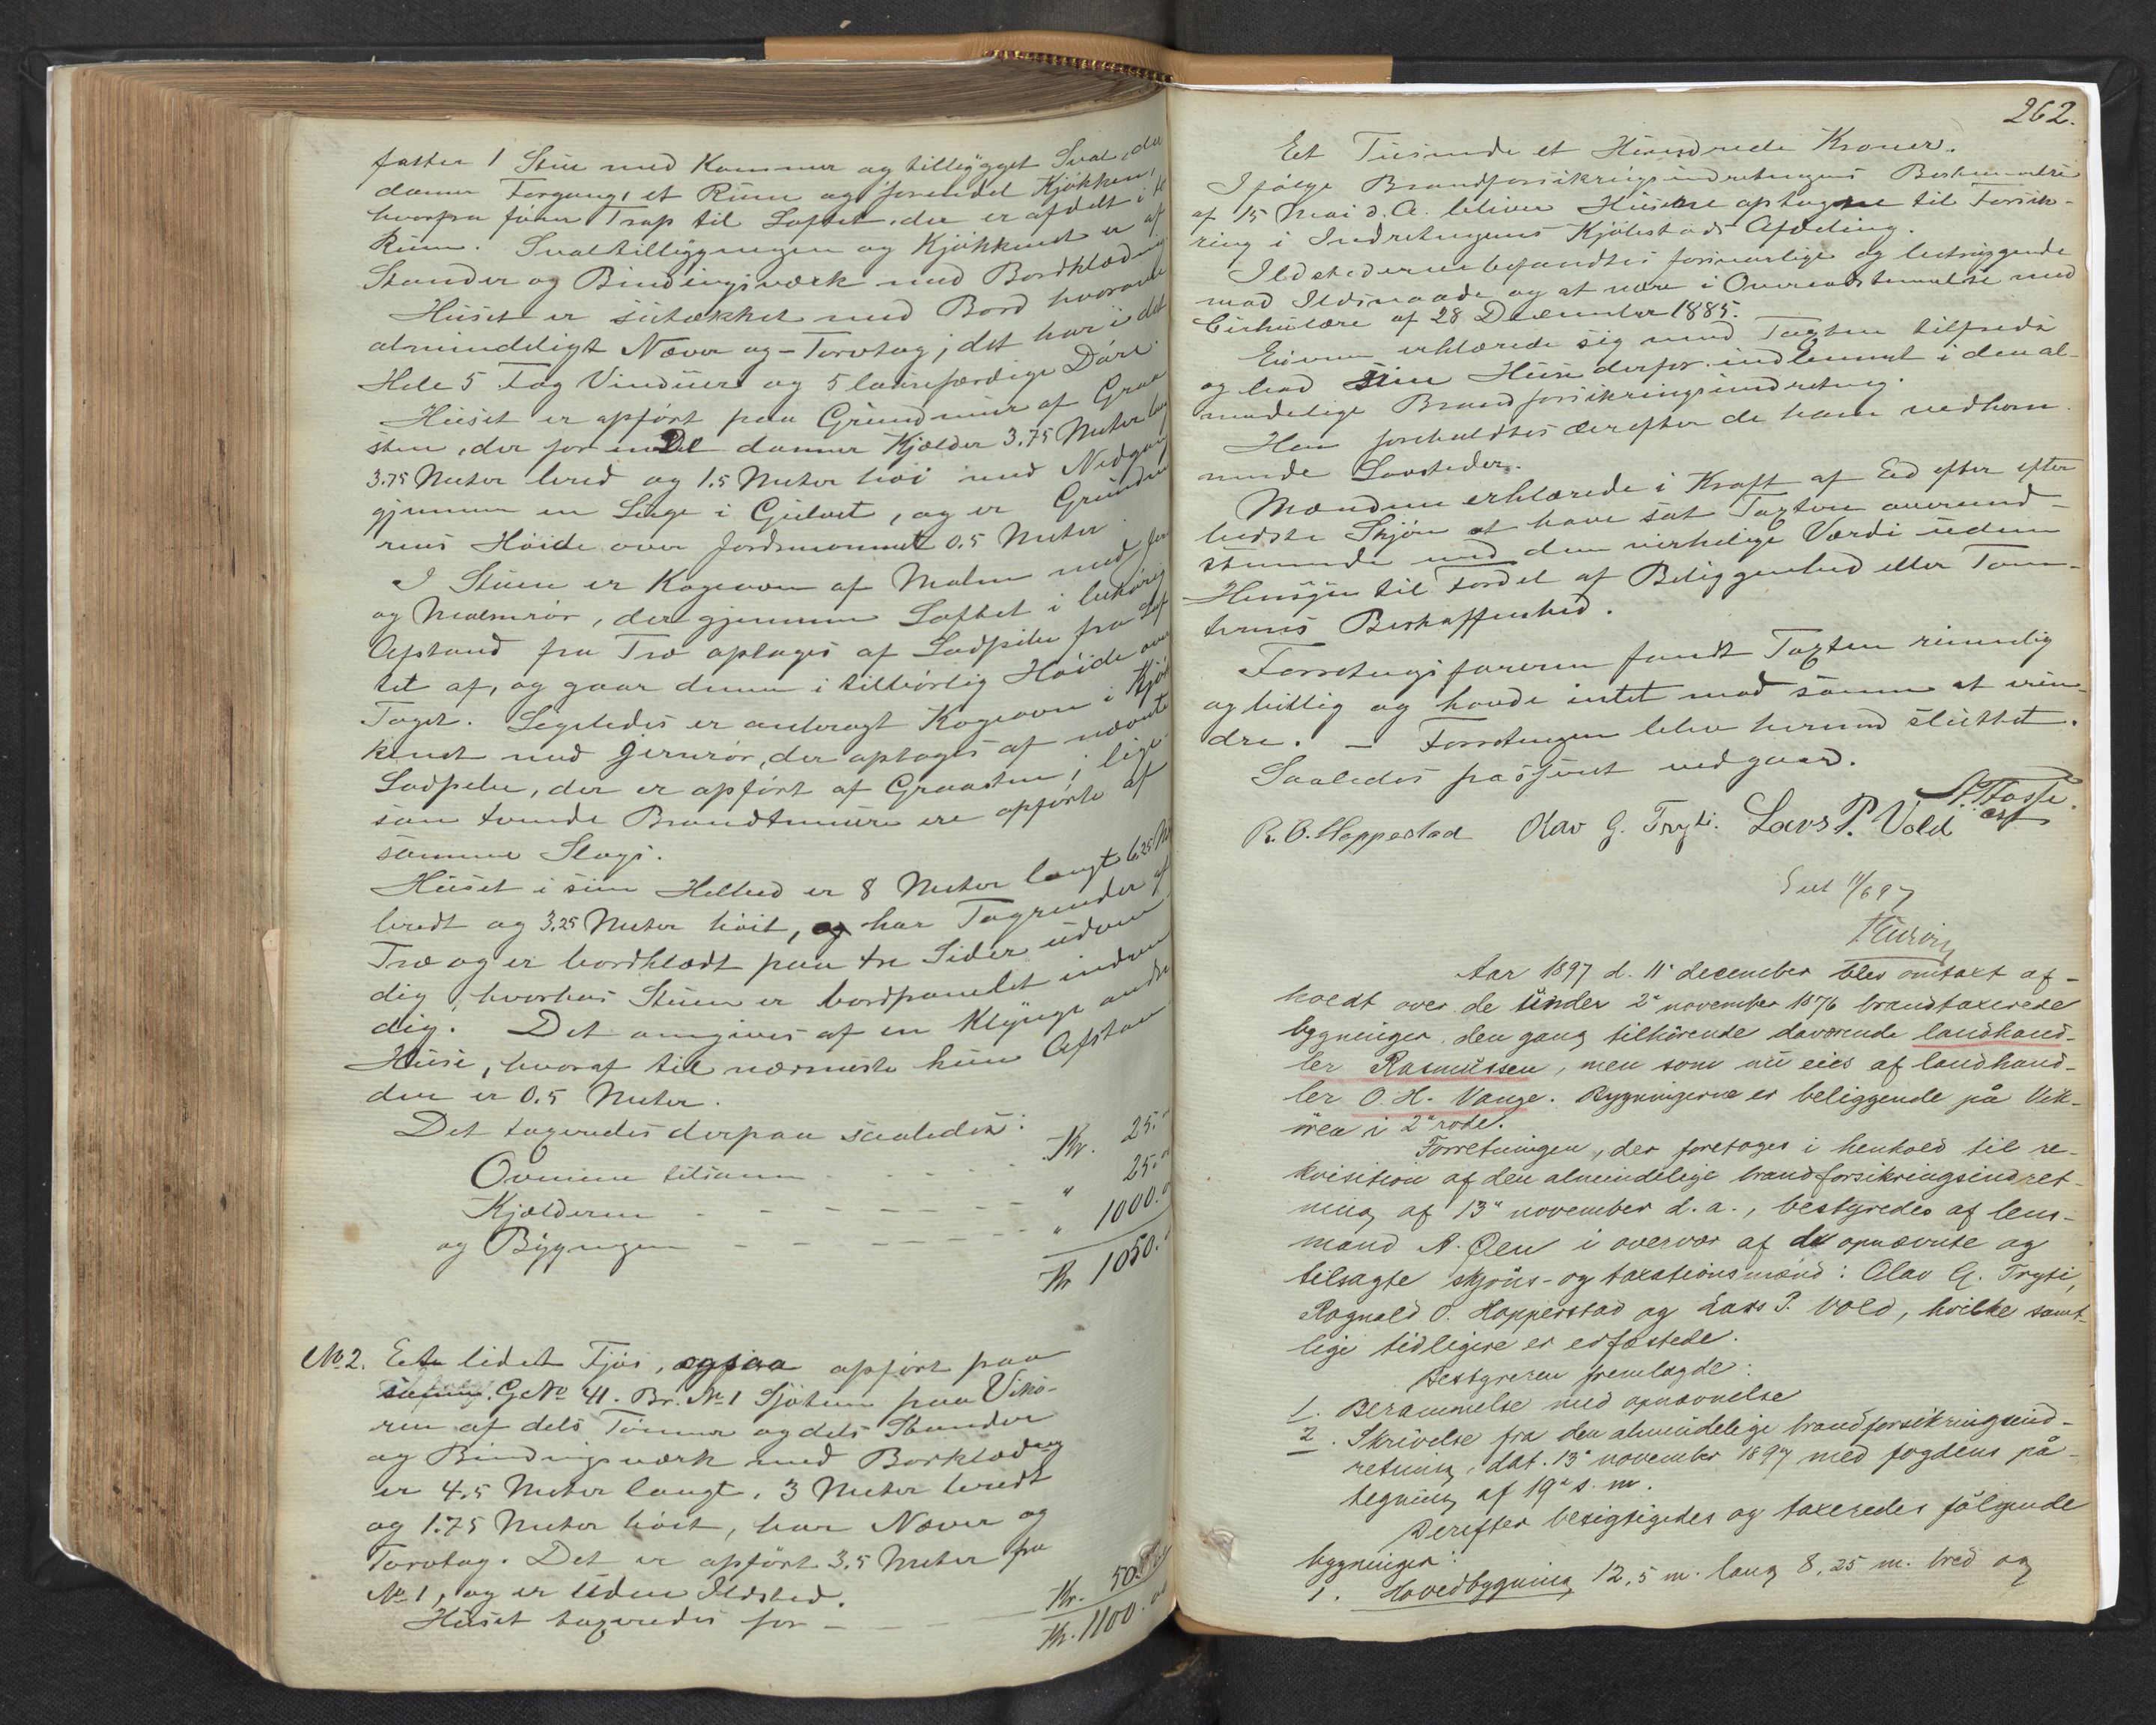 fatter 1 Stue med Kammer og tilbygget Sval, der
danner Forgang, et Rum og forendel Kjøkken,
hvorfra fører Trap til Loftet, der er afdelt i to
Rum. Svaltilbygningen og Kjøkkenet er af
Stander og Bindingsværk med Bordklædning
Huset er sutækket med Bord hvorover
almindeligt Næver og Torvtag; det har i det
Hele 5 Fag Vinduer og 5 laasefærdige Døre.
Huset er opført paa Grundmur af Graa
sten, der for en Del danner Kjælder 3.75 Meter lang
3.75 Meter bred og 1.5 Meter høi med Nedgang
gjennem en Luge i Gulvet, og er Grundmu
rens Høide over Jordsmonnet 0.5 Meter.
I Stuen er Kogeovn af Malm med Jern
og Malmrør, der gjennem Loftet i behørig
Afstand fra Træ optages af Sodpibe fra Lof
tet af, og gaar denne i tilbørlig Høide over
Taget. Ligeledes er anbragt Kogeovn i Kjøk
kenet med Jernrør, der optages af nævnte
Sodpibe, der er opført af Graasten; lige-
som tvende Brandtmure ere opførte af
samme Slags.
Huset i sin Helhed er 8 Meter langt 6.25 M
bredt og 3.25 Meter høit, og har Tagrender af
Træ og er bordklædt paa tre Sider udven
dig, hvorhos Stuen er bordpanelet indven
dig. Det omgives af en Klynge andre
Huse, hvoraf til nærmeste kun Afstan
den er 0.5 Meter.
Det taxeredes derpaa saaledes:
Ovnene tilsammen Kr. 25.
Kjælderen " 25.
og Bygningen " 1000.
Kr 1050.
No 2. Et lidet Fjøs, ogsaa opført paa
G.No 41. Br. No 1 Sjøtun paa Vikø-
ren af dels Tømmer og dels Stander
og Bindingsværk med Bordklædning
er 4.5 Meter langt, 3 Meter bredt
og 1.75 Meter høit, har Næver og
Torvtag. Det er opført 3.5 Meter fra
No 1, og er uden Ildsted.
Huset taxeredes for Kr. 50.
Kr. 1100.00
262.
Et Tusinde et Hundrede Kroner.
Ifølge Brandforsikringsindretningens Bestemmelse
af 15 Mai d. A. bliver Husene optagne til Forsik-
ring i Indretningens Kjøbstads Afdeling.
Ildstederne befandtes forsvarlige og betryggende
mod Ildsvaade og at være i Overensstemmelse med
Cirkulære af 28 December 1885.
Eieren erklærede sig med Taxten tilfreds
og lod sine Huse derfor indlemmet i den al-
mindelige Brandforsikringsindretning.
Han foreholdtes derefter de ham vedkom-
mende Lovsteder.
Mændene erklærede i Kraft af Eed efter
bedste Skjøn at have sat Taxten overens-
stemmende med den virkelige Værdi uden
Hensyn til Fordel af Beliggenhed eller Tom-
ternes Beskaffenhed.
Forretningsføreren fandt Taxten rimelig
og billig og havde intet mod samme at erin-
dre. — Forretningen blev hermed sluttet.
Saaledes passeret vedgaar.
R. O. Hopperstad Olav G. Tryti. Lars P. Vold
Aar 1897 d. 11' december blev omtaxt af-
holdt over de under 2' november 1876 brandtaxerede
bygninger, den gang tilhørende daværende landhand-
ler Rasmussen, men som nu eies af landhand-
ler O. H. Vange. Bygningerne er beliggende på Vik-
øren i 2' rode.
Forretningen, der foretages i henhold til re-
kvisition af den almindelige brandforsikringsindret-
ning af 13' november d. a., bestyredes af lens-
mand A. Øen i overvær af de opnævnte og
tilsagte skjøns- og taxationsmænd: Olav G. Tryti,
Ragnald O. Hopperstad og Lars P. Vold, hvilke samt-
lige tidligere er edfæstede.
Bestyreren fremlagde:
1. Berammelse med opnævnelse
2. Skrivelse fra den almindelige brandforsikringsind-
retning, dat. 13' november 1897 med fogdens på-
tegning af 19' s. m.
Derefter besigtigedes og taxeredes følgende
bygninger:
1. Hovedbygning 12,5 m. lang 8,25 m. bred og